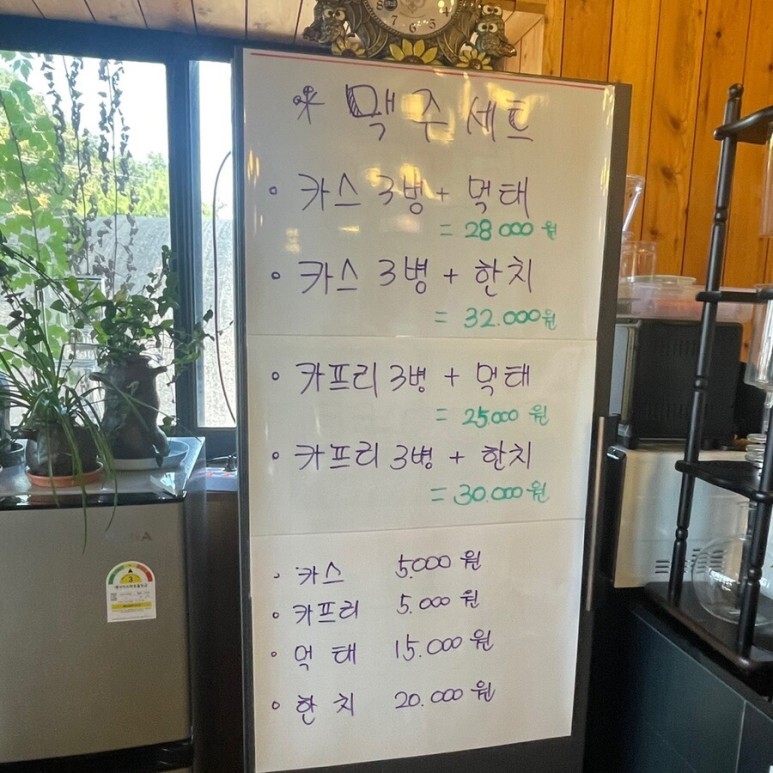 * 맥주세트
◦ 카스 3병 + 먹태
= 28000원
◦ 카스 3병 + 한치
= 32.000원
◦ 카프리 3병 + 먹태
= 25000 원
◦ 카프리 3병 + 한치
= 30.000원
◦ 카스 5.000 원
◦ 카프리 5.000 원
◦ 먹태 15.000원
◦ 한치 20.000원